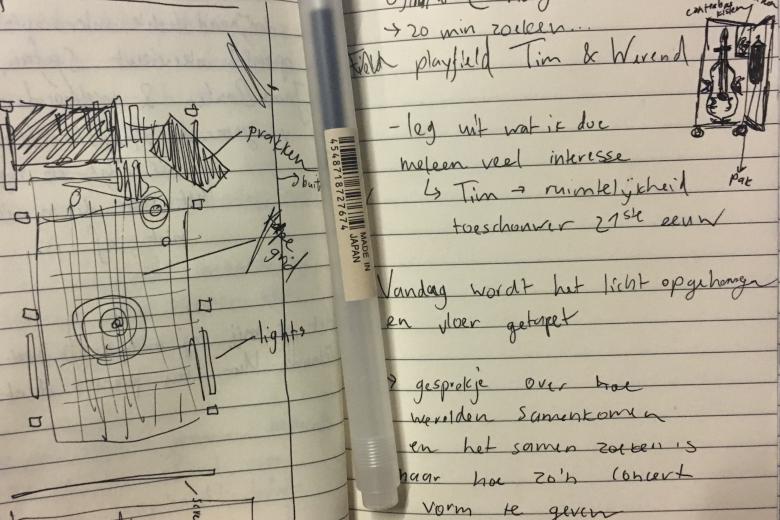 prakken
→ bui
tape
grid
lights
→ 20 min zoeken...
playfield Tim & Werend
- leg uit wat ik doe
meteen veel interesse
↳ Tim → ruimtelijkheid
toeschouwer 21ste eeuw
Vandaag wordt het licht opgehangen
en vloer getapet
→ gesprekje over hoe
werelden samenkomen
en het samen zoeken is
naar hoe zo'n concert
vorm te geven
contrabas
kisten
pak
4548718727674
MADE IN
JAPAN